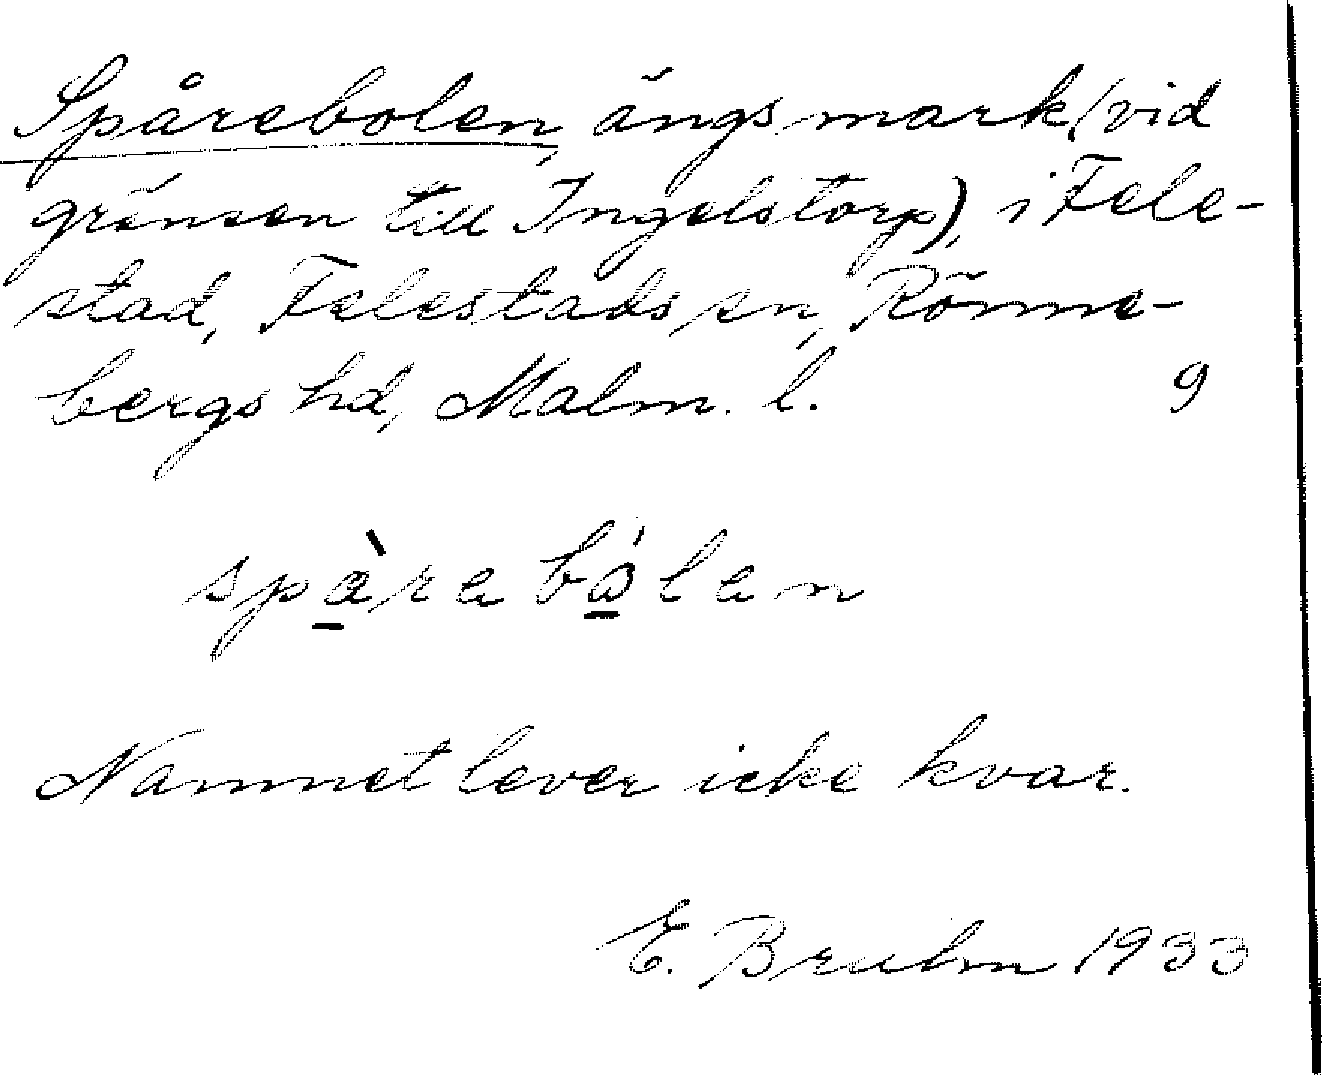 Spårebolen, ängsmark (vid
gränsen till Ingelstorp), i Fele-
stad, Felestads sn, Rönne-
bergs hd, Malm. l. 9
spàrebólen
Namnet lever icke kvar.
E. Bruhn 1933